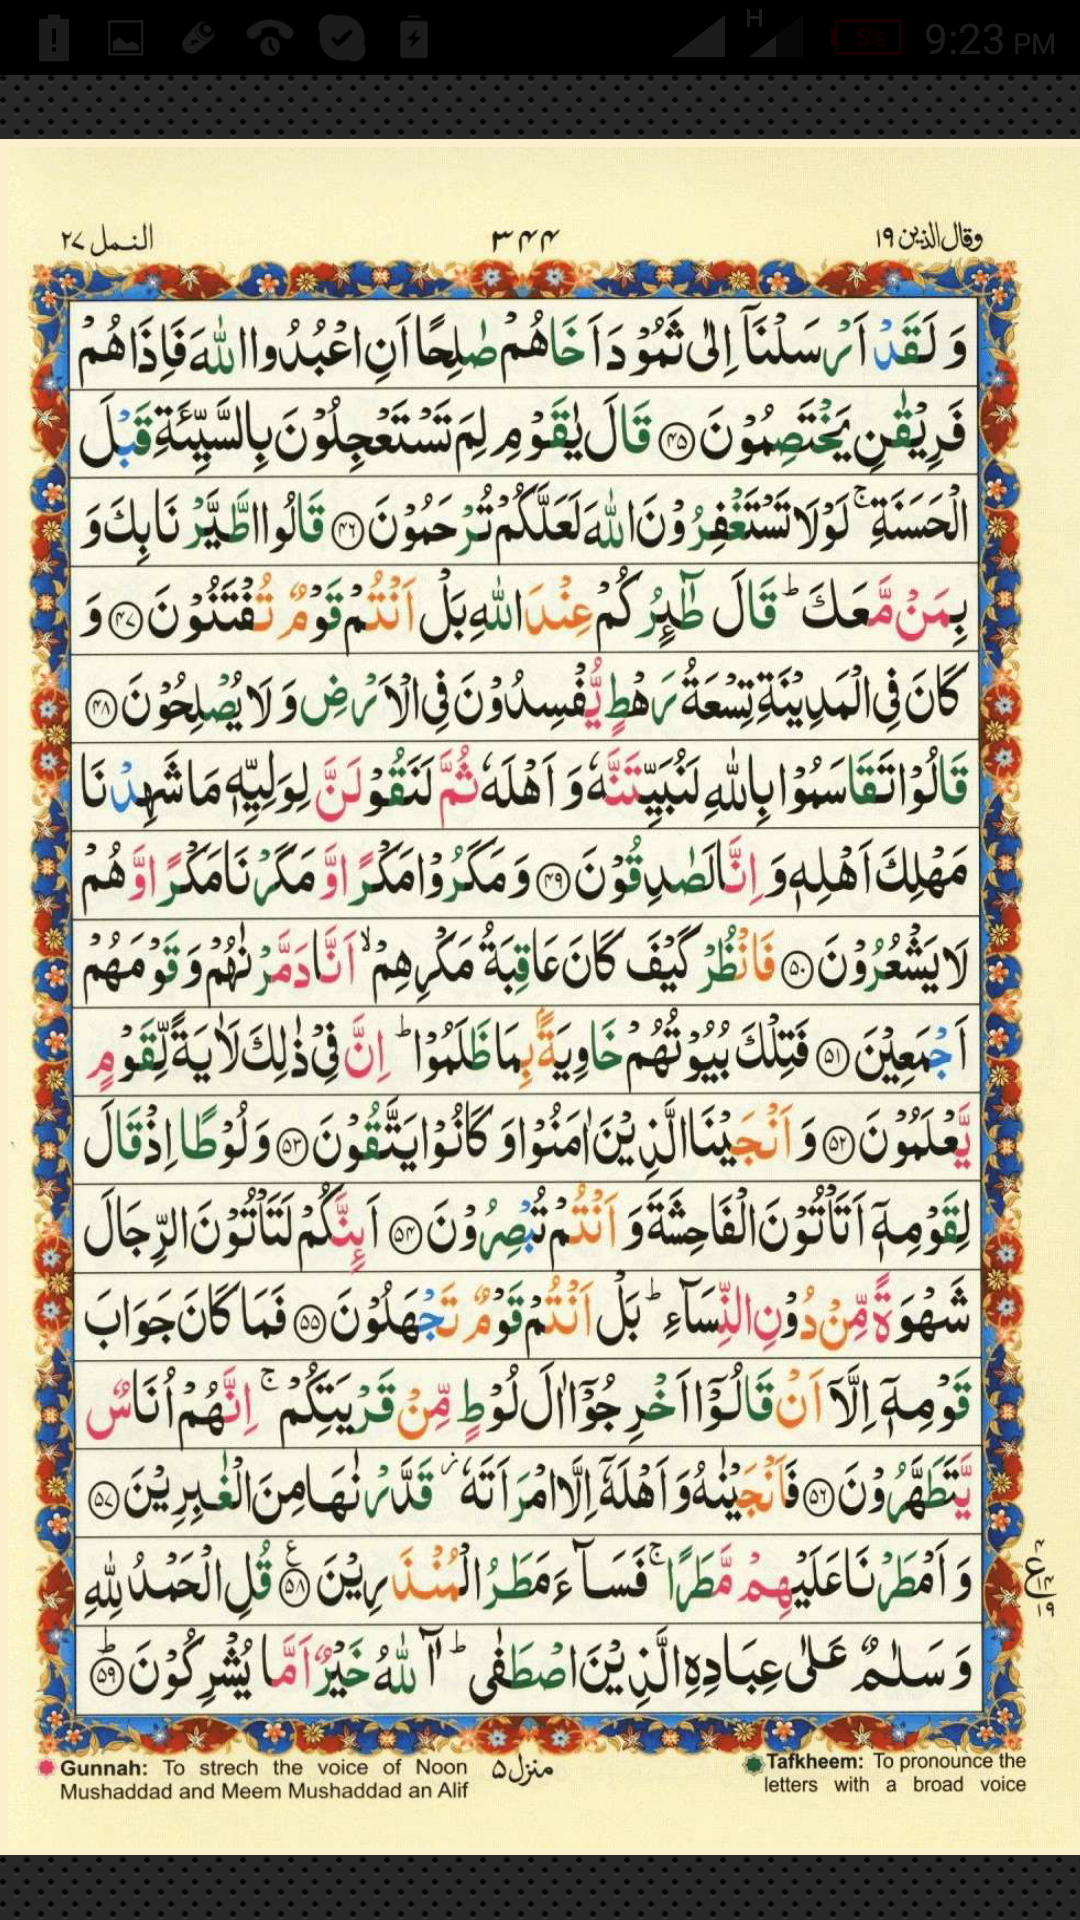 H
5%
9:23 PM
وقال الذین ۱۹
۳۴۴
النمل ۲۷
وَ لَقَدْ اَرْسَلْنَاۤ اِلٰى ثَمُوْدَ اَخَاهُمْ صٰلِحًا اَنِ اعْبُدُوا اللّٰهَ فَاِذَا هُمْ
فَرِیْقٰنِ یَخْتَصِمُوْنَ ﴿۴۵﴾ قَالَ یٰقَوْمِ لِمَ تَسْتَعْجِلُوْنَ بِالسَّیِّئَةِ قَبْلَ
الْحَسَنَةِ ۚ لَوْلَا تَسْتَغْفِرُوْنَ اللّٰهَ لَعَلَّكُمْ تُرْحَمُوْنَ ﴿۴۶﴾ قَالُوا اطَّیَّرْنَا بِكَ وَ
بِمَنْ مَّعَكَ ؕ قَالَ طٰٓئِرُكُمْ عِنْدَ اللّٰهِ بَلْ اَنْتُمْ قَوْمٌ تُفْتَنُوْنَ ﴿۴۷﴾ وَ
كَانَ فِی الْمَدِیْنَةِ تِسْعَةُ رَهْطٍ یُّفْسِدُوْنَ فِی الْاَرْضِ وَ لَا یُصْلِحُوْنَ ﴿۴۸﴾
قَالُوْا تَقَاسَمُوْا بِاللّٰهِ لَنُبَیِّتَنَّهٗ وَ اَهْلَهٗ ثُمَّ لَنَقُوْلَنَّ لِوَلِیِّهٖ مَا شَهِدْنَا
مَهْلِكَ اَهْلِهٖ وَ اِنَّا لَصٰدِقُوْنَ ﴿۴۹﴾ وَ مَكَرُوْا مَكْرًا وَّ مَكَرْنَا مَكْرًا وَّ هُمْ
لَا یَشْعُرُوْنَ ﴿۵۰﴾ فَانْظُرْ كَیْفَ كَانَ عَاقِبَةُ مَكْرِهِمْ ۙ اَنَّا دَمَّرْنٰهُمْ وَ قَوْمَهُمْ
اَجْمَعِیْنَ ﴿۵۱﴾ فَتِلْكَ بُیُوْتُهُمْ خَاوِیَةًۢ بِمَا ظَلَمُوْا ؕ اِنَّ فِیْ ذٰلِكَ لَاٰیَةً لِّقَوْمٍ
یَّعْلَمُوْنَ ﴿۵۲﴾ وَ اَنْجَیْنَا الَّذِیْنَ اٰمَنُوْا وَ كَانُوْا یَتَّقُوْنَ ﴿۵۳﴾ وَ لُوْطًا اِذْ قَالَ
لِقَوْمِهٖۤ اَتَاْتُوْنَ الْفَاحِشَةَ وَ اَنْتُمْ تُبْصِرُوْنَ ﴿۵۴﴾ اَىِٕنَّكُمْ لَتَاْتُوْنَ الرِّجَالَ
شَهْوَةً مِّنْ دُوْنِ النِّسَآءِ ؕ بَلْ اَنْتُمْ قَوْمٌ تَجْهَلُوْنَ ﴿۵۵﴾ فَمَا كَانَ جَوَابَ
قَوْمِهٖۤ اِلَّاۤ اَنْ قَالُوْۤا اَخْرِجُوْۤا اٰلَ لُوْطٍ مِّنْ قَرْیَتِكُمْ ۚ اِنَّهُمْ اُنَاسٌ
یَّتَطَهَّرُوْنَ ﴿۵۶﴾ فَاَنْجَیْنٰهُ وَ اَهْلَهٗۤ اِلَّا امْرَاَتَهٗ ؗ قَدَّرْنٰهَا مِنَ الْغٰبِرِیْنَ ﴿۵۷﴾
وَ اَمْطَرْنَا عَلَیْهِمْ مَّطَرًا ۚ فَسَآءَ مَطَرُ الْمُنْذَرِیْنَ ﴿۵۸﴾ ع قُلِ الْحَمْدُ لِلّٰهِ
ع ۴ ۱۴ ۱۹
وَ سَلٰمٌ عَلٰى عِبَادِهِ الَّذِیْنَ اصْطَفٰى ؕ آٰللّٰهُ خَیْرٌ اَمَّا یُشْرِكُوْنَ ﴿۵۹﴾ؕ
Gunnah: To strech the voice of Noon
Mushaddad and Meem Mushaddad an Alif
منزل ۵
Tafkheem: To pronounce the
letters with a broad voice